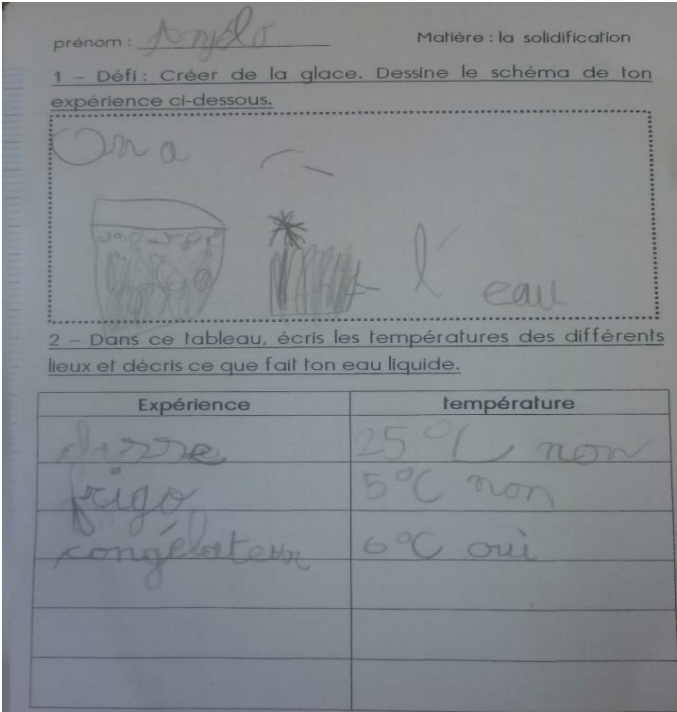 prénom : Angelo
Matière : la solidification
1 – Défi : Créer de la glace. Dessine le schéma de ton
expérience ci-dessous.
On a
l' eau
2 – Dans ce tableau, écris les températures des différents
lieux et décris ce que fait ton eau liquide.
Expérience température
25°C non
frigo 5°C non
congélateur 6°C oui